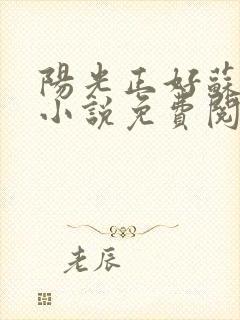 陽光正好蘇
小說免費閱
老辰